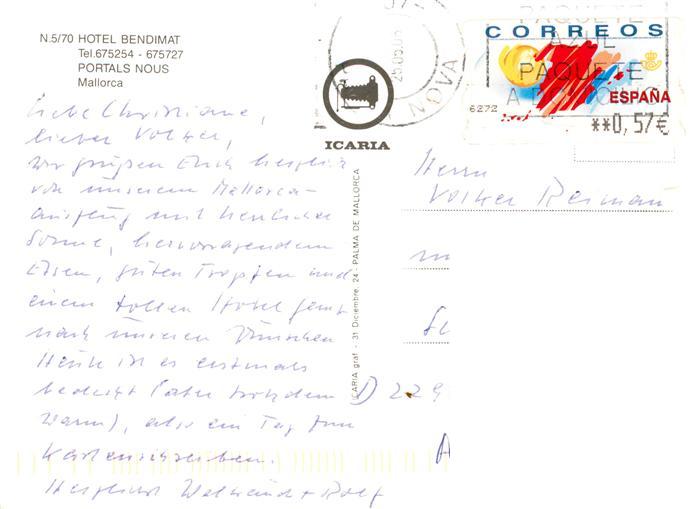 N.5/70 HOTEL BENDIMAT
Tel.675254 - 675727
PORTALS NOUS
Mallorca
Liebe Christiane,
lieber Volker,
wir grüßen Euch herzlich
von unserem Mallorca-
ausflug mit herrlicher
Sonne, hervorragendem
Essen, guten Tropfen und
einem tollen Hotel ganz
nach unseren Wünschen
Heute ist es erstmals
bedeckt (aber trotzdem
warm), also ein Tag zum
Kartenschreiben.
Herzlichst + Rolf
ICARIA
ICARIA graf. - 31 Diciembre, 24 - PALMA DE MALLORCA
NOVA
CORREOS
AZUL
PAQUETE
ESPAÑA
6272
**0,57€
Herrn
Volker Reimau
D 229